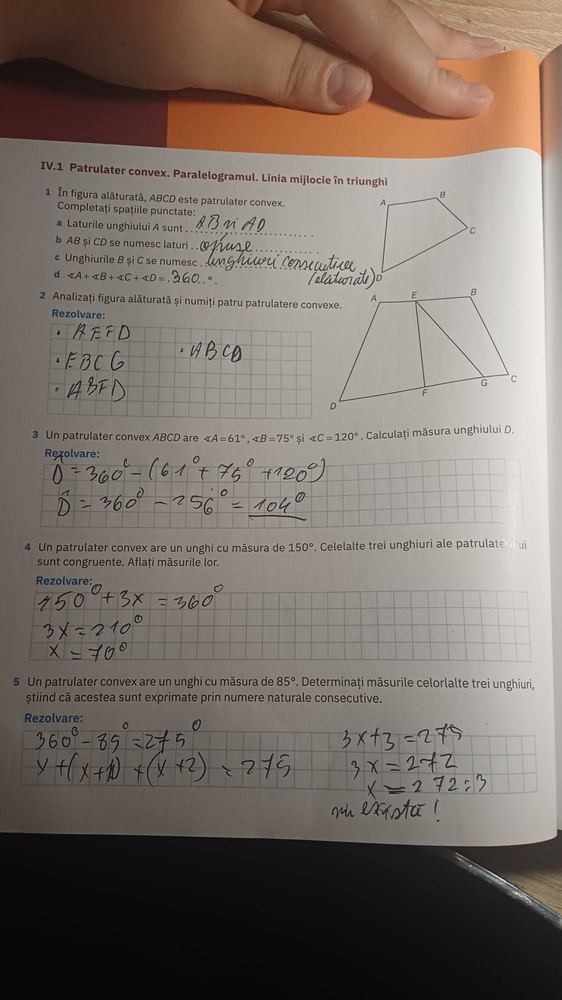 IV.1 Patrulater convex. Paralelogramul. Linia mijlocie în triunghi
1 În figura alăturată, ABCD este patrulater convex.
Completați spațiile punctate:
a Laturile unghiului A sunt . . AB și AD . . . . . . .
b AB și CD se numesc laturi . . opuse . . . . . . . . .
c Unghiurile B și C se numesc . . unghiuri consecutive
(alăturate)
d ∢A + ∢B + ∢C + ∢D = . 360 . . °.
A
B
C
D
2 Analizați figura alăturată și numiți patru patrulatere convexe.
Rezolvare:
• AEFD
• ABCD
• EBCG
• ABFD
A
E
B
D
F
G
C
3 Un patrulater convex ABCD are ∢A = 61°, ∢B = 75° și ∢C = 120°. Calculați măsura unghiului D.
Rezolvare:
D̂ = 360° - (61° + 75° + 120°)
D̂ = 360° - 256° = 104°
4 Un patrulater convex are un unghi cu măsura de 150°. Celelalte trei unghiuri ale patrulaterului
sunt congruente. Aflați măsurile lor.
Rezolvare:
150° + 3x = 360°
3x = 210°
x = 70°
5 Un patrulater convex are un unghi cu măsura de 85°. Determinați măsurile celorlalte trei unghiuri,
știind că acestea sunt exprimate prin numere naturale consecutive.
Rezolvare:
360° - 85° = 275°
x + (x+1) + (x+2) = 275
3x+3 = 275
3x = 272
x = 272:3
nu există!